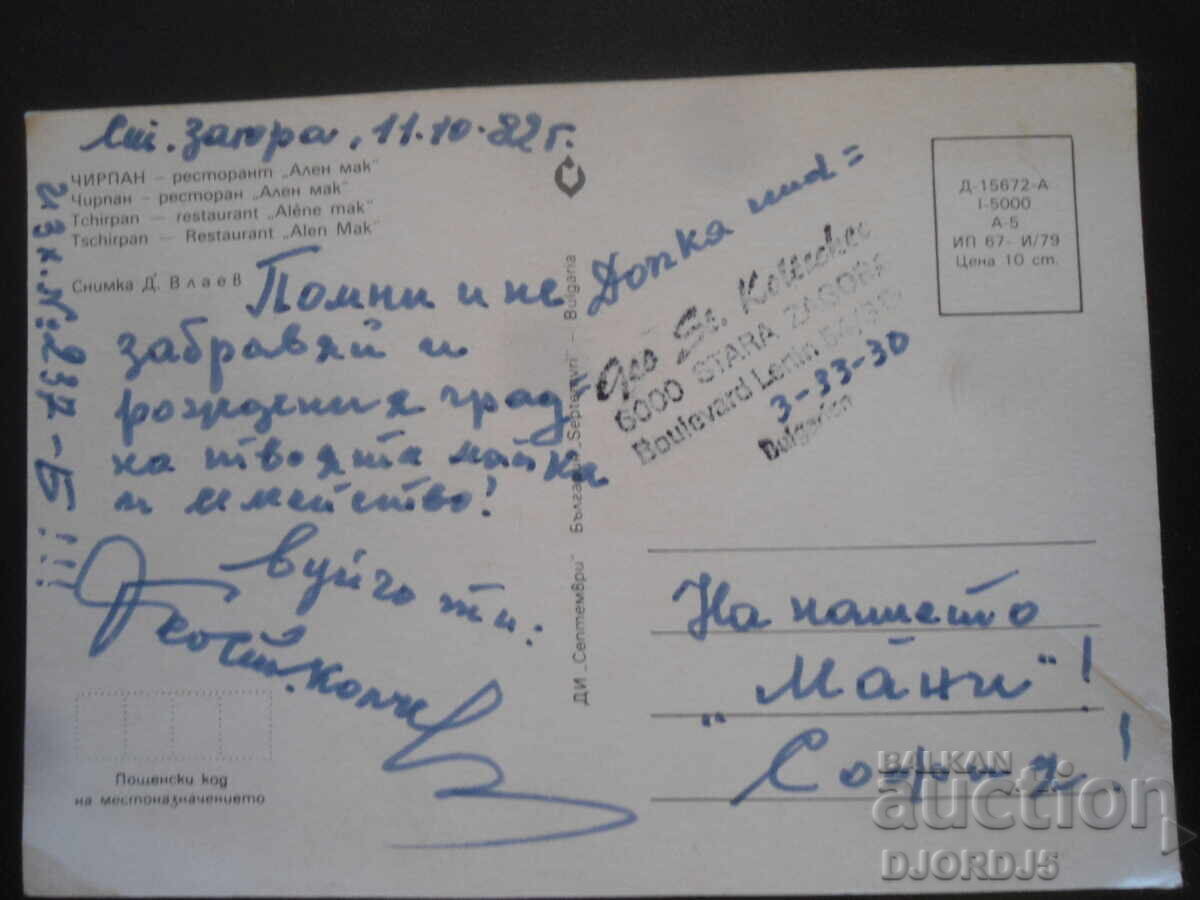 Ст. Загора, 11.10.82 г.
ЧИРПАН — ресторант „Ален мак“
Чирпан — ресторан „Ален мак“
Tchirpan — restaurant “Alène mak”
Tschirpan — Restaurant „Alen Mak“
Снимка Д. Влаев
Помни и не
забравяй и
рождения град
на твоята майка
и семейство!
вуйчо ти:
Пощенски код
на местоназначението
ДИ „Септември“ България „Septemvri“ — Bulgaria
Geo St.
6000 STARA ZAGORA
Boulevard Lenin
3-33-30
Bulgarien
Д-15672-А
I-5000
А-5
ИП 67- И/79
Цена 10 ст.
На нашето
"Мáни"!
София!
BALKAN
auction
DJORDJ5